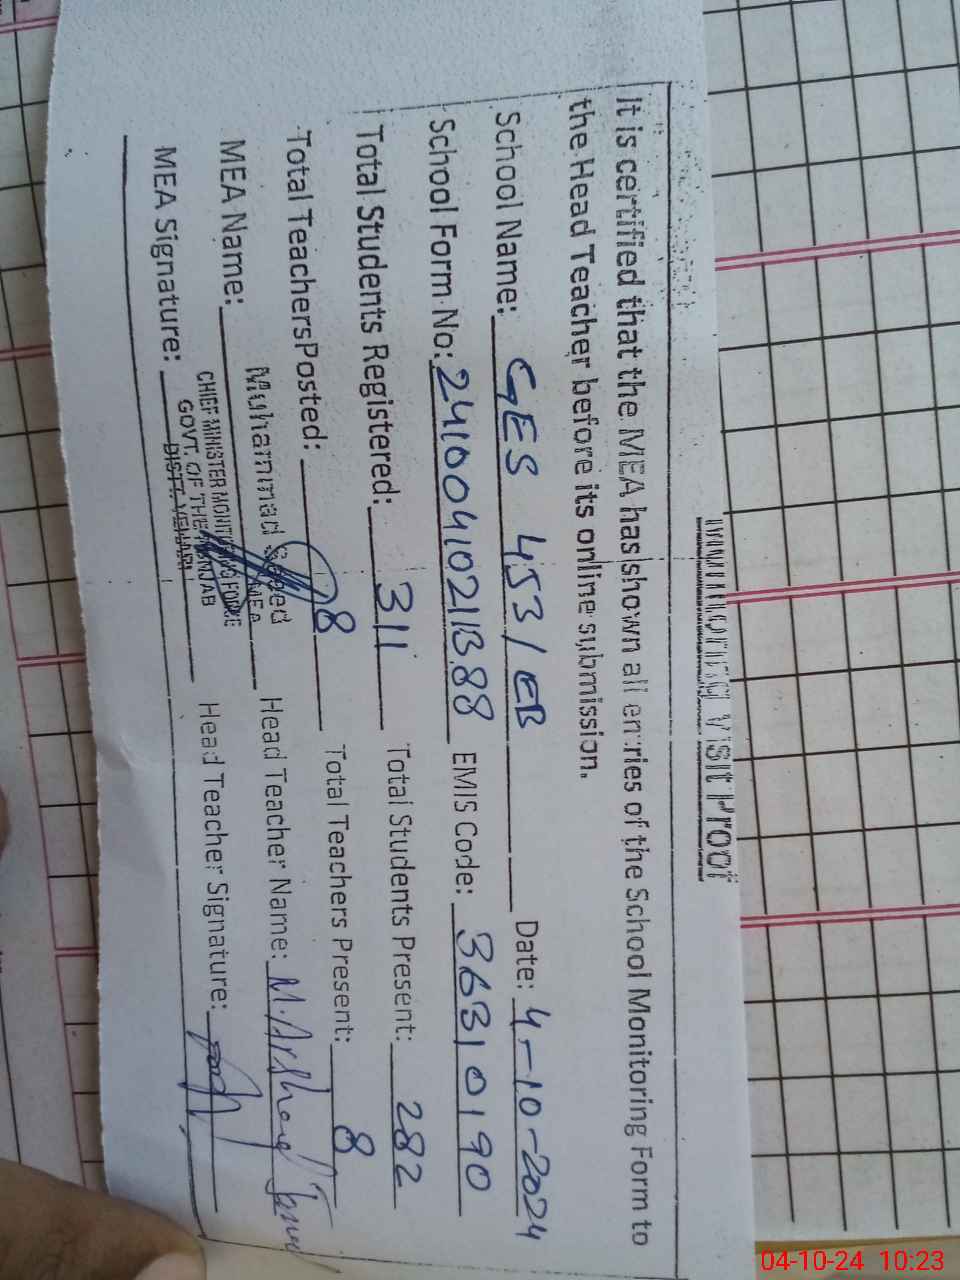 Monitoring Visit Proof
It is certified that the MEA has shown all entries of the School Monitoring Form to
the Head Teacher before its online submission.
School Name: GES 453/EB Date: 4-10-2024
School Form No: EMIS Code: 36310190
Total Students Registered: 311 Total Students Present: 282
Total Teachers Posted: 08 Total Teachers Present: 8
MEA Name: Muhammad Saeed Head Teacher Name: M. Arshad
MEA
CHIEF MINISTER MONITORING FORCE
MEA Signature: GOVT. OF THE PUNJAB Head Teacher Signature:
DISTT. VEHARI
04-10-24 10:23